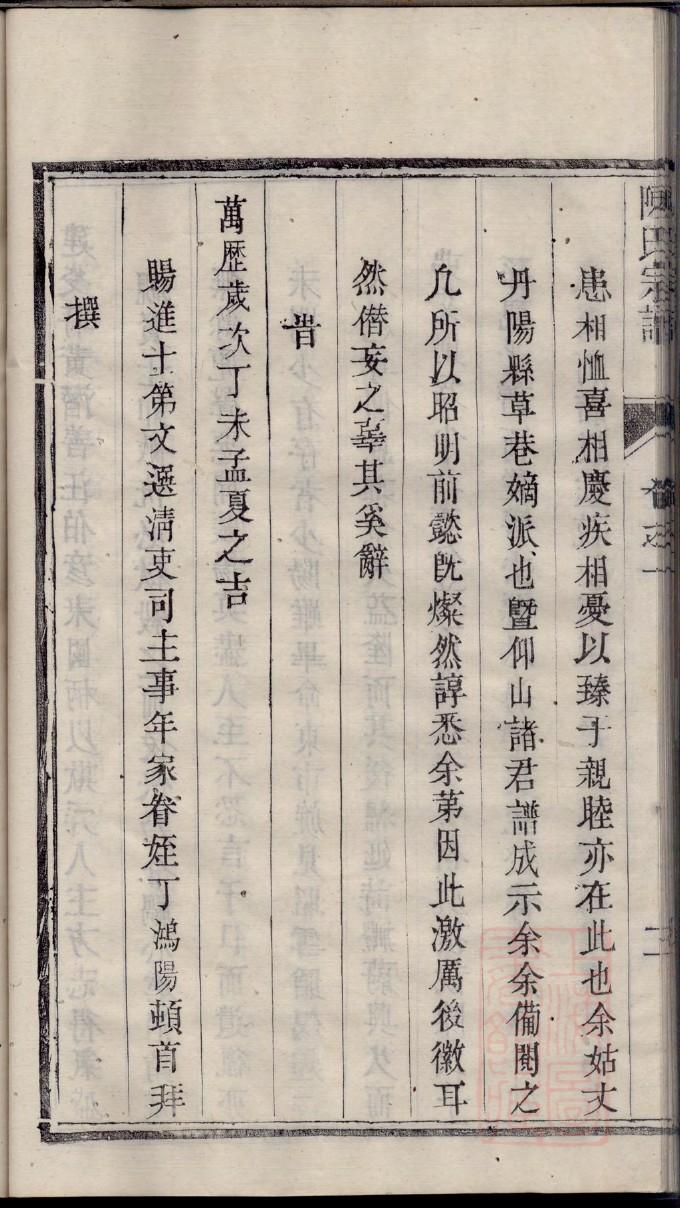 陳氏宗譜
卷之一
二
患相恤喜相慶疾相憂以臻于親睦亦在此也余姑丈
丹陽縣草巷嫡派也曁仰山諸君譜成示余余備閱之
凡所以昭明前懿旣燦然諄悉余第因此激厲後徽耳
然僭妄之辜其奚辭
旹
萬歷歲次丁未孟夏之吉
賜進士第文選淸吏司主事年家眷姪丁鴻陽頓首拜
撰